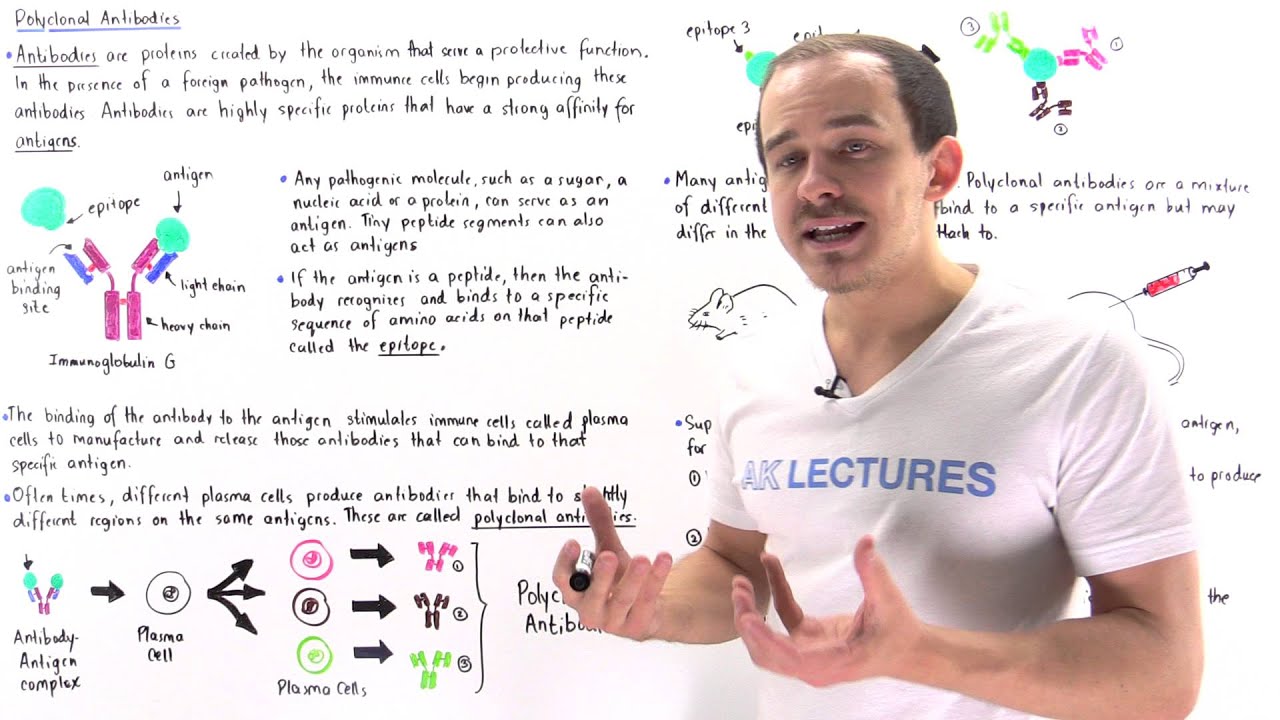 Polyclonal Antibodies
• Antibodies are proteins created by the organism that serve a protective function.
In the presence of a foreign pathogen, the immune cells begin producing these
antibodies Antibodies are highly specific proteins that have a strong affinity for
antigens.
epitope
antigen
antigen
binding
site
light chain
heavy chain
Immunoglobulin G
• Any pathogenic molecule, such as a sugar, a
nucleic acid or a protein, can serve as an
antigen. Tiny peptide segments can also
act as antigens
• If the antigen is a peptide, then the anti-
body recognizes and binds to a specific
sequence of amino acids on that peptide
called the epitope.
• The binding of the antibody to the antigen stimulates immune cells called plasma
cells to manufacture and release those antibodies that can bind to that
specific antigen.
• Often times, different plasma cells produce antibodies that bind to slightly
different regions on the same antigens. These are called polyclonal antibodies.
Antibody-
Antigen
complex
Plasma
Cell
Plasma Cells
①
②
③
epitope 3
③
①
②
• Many antig
of different
differ in the
. Polyclonal antibodies are a mixture
bind to a specific antigen but may
to.
• Sup
for
antigen,
①
to produce
②
the
AK LECTURES